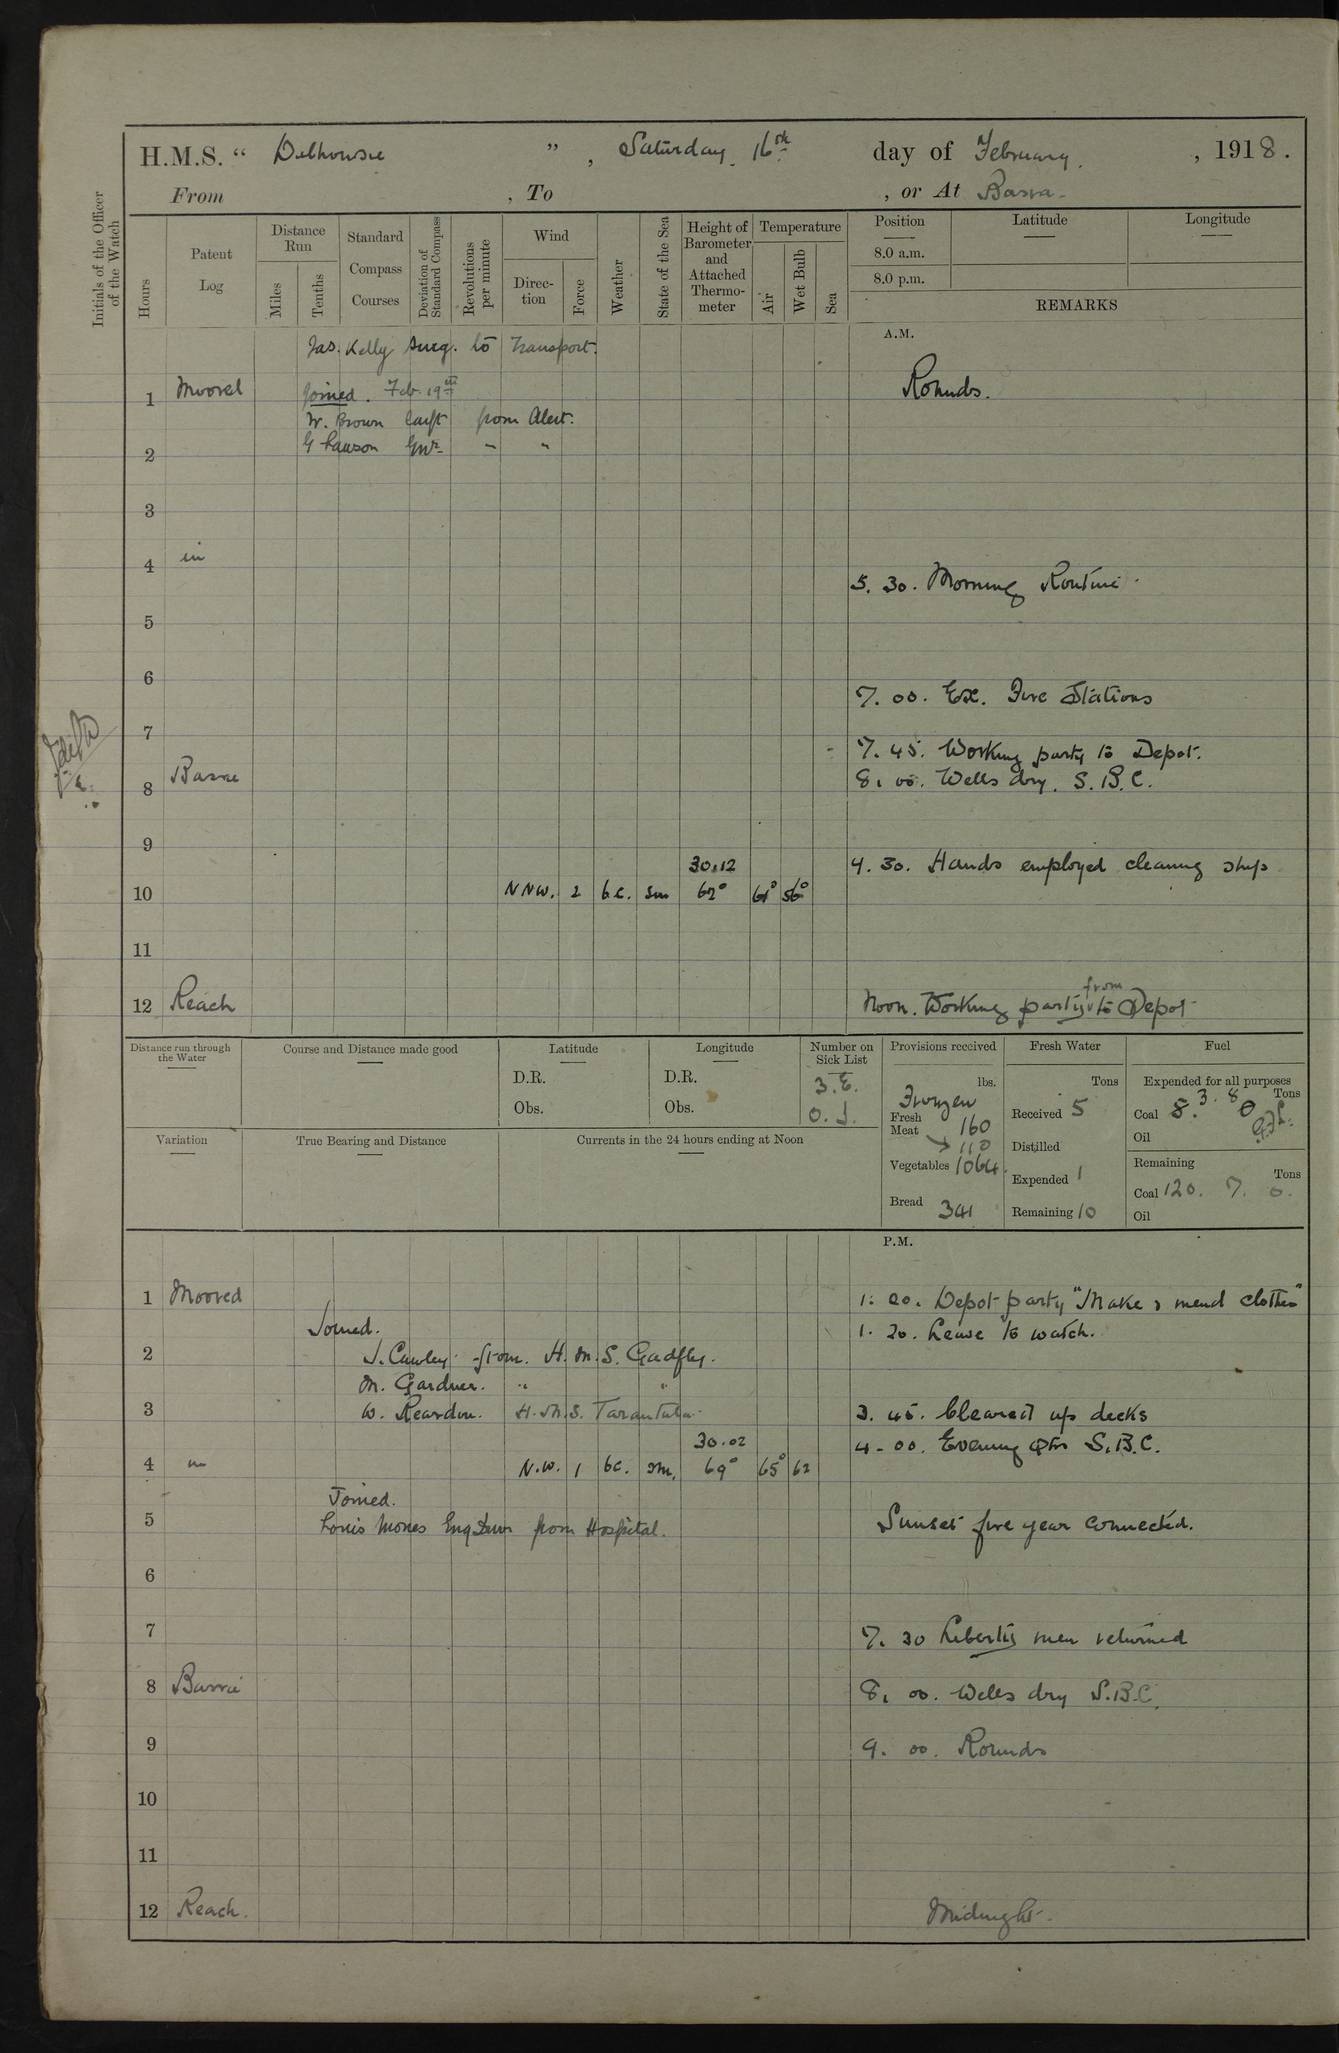 H.M.S. " Dalhousie " , Saturday 16th day of February , 1918 .
From , To , or At Basra
Initials of the Officer of the Watch
Hours
Patent Log
Distance Run
Miles
Tenths
Standard Compass Courses
Deviation of Standard Compass
Revolutions per minute
Wind
Direction
Force
Weather
State of the Sea
Height of Barometer and Attached Thermometer
Temperature
Air
Wet Bulb
Sea
Position
Latitude
Longitude
8.0 a.m.
8.0 p.m.
REMARKS
A.M.
Jas. Kelly Surg. to Transport.
1 Moored Joined. Feb. 19th Rounds.
W. Brown from Alert.
2 G Lawson Gnr - "
3
4 in
5. 30. Morning Routine
5
6
7. 00. Ex. Fire Stations
7
7. 45. Working party to Depot.
8 Basra 8. 00. Wells dry. S.B.C.
9
30.12 9. 30. Hands employed cleaning ship
10 NNW. 2 b.c. sm 62° 61° 56°
11
from
12 Reach Noon. Working party to Depot
Distance run through the Water
Course and Distance made good
Latitude
D.R.
Obs.
Longitude
D.R.
Obs.
Number on Sick List
3. E.
0. I.
Provisions received
lbs.
Frozen
Fresh Meat 160
110
Vegetables 1064.
Bread 341
Fresh Water
Tons
Received 5
Distilled
Expended 1
Remaining 10
Fuel
Expended for all purposes
Tons
Coal 8. 3. 8 0
Oil
Remaining
Tons
Coal 120. 7. 0.
Oil
Variation
True Bearing and Distance
Currents in the 24 hours ending at Noon
P.M.
1 Moored 1. 20. Depot party "Make & mend clothes"
Joined. 1. 20. Leave to watch.
2 J. Cawley from. H.M.S. Gadfly.
M. Gardner. " "
3 W. Reardon. H.M.S. Tarantula. 3. 45. Cleared up decks
30.02 4-00. Evening Qtrs S.B.C.
4 in N.W. 1 bc. sm. 69° 65° 62
Joined.
5 Louis Mones from Hospital. Sunset fire gear connected.
6
7 7. 30 Liberty men returned
8 Basra 8. 00. Wells dry S.B.C.
9 9. 00. Rounds
10
11
12 Reach. Midnight.